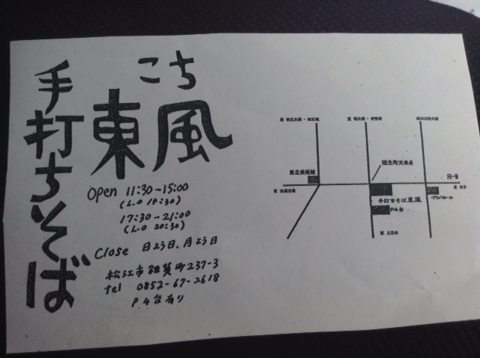 手打ちそば
こち
東風
Open 11:30-15:00
(L.O 14:30)
17:30-21:00
(L.O 20:30)
Close 日よう日、月よう日
松江市雑賀町237-3
Tel 0852-67-2618
P4台有り
R-9
手打ちそば東風
P4台